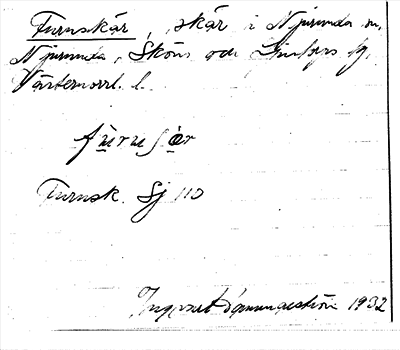 Furuskär, skär i Njurunda sn,
Njurunda, Sköns och Indors tg,
Västernorrl. l.
fùruʃòr
Furusk. Sj 110
Ingvar Gammaeström 1932